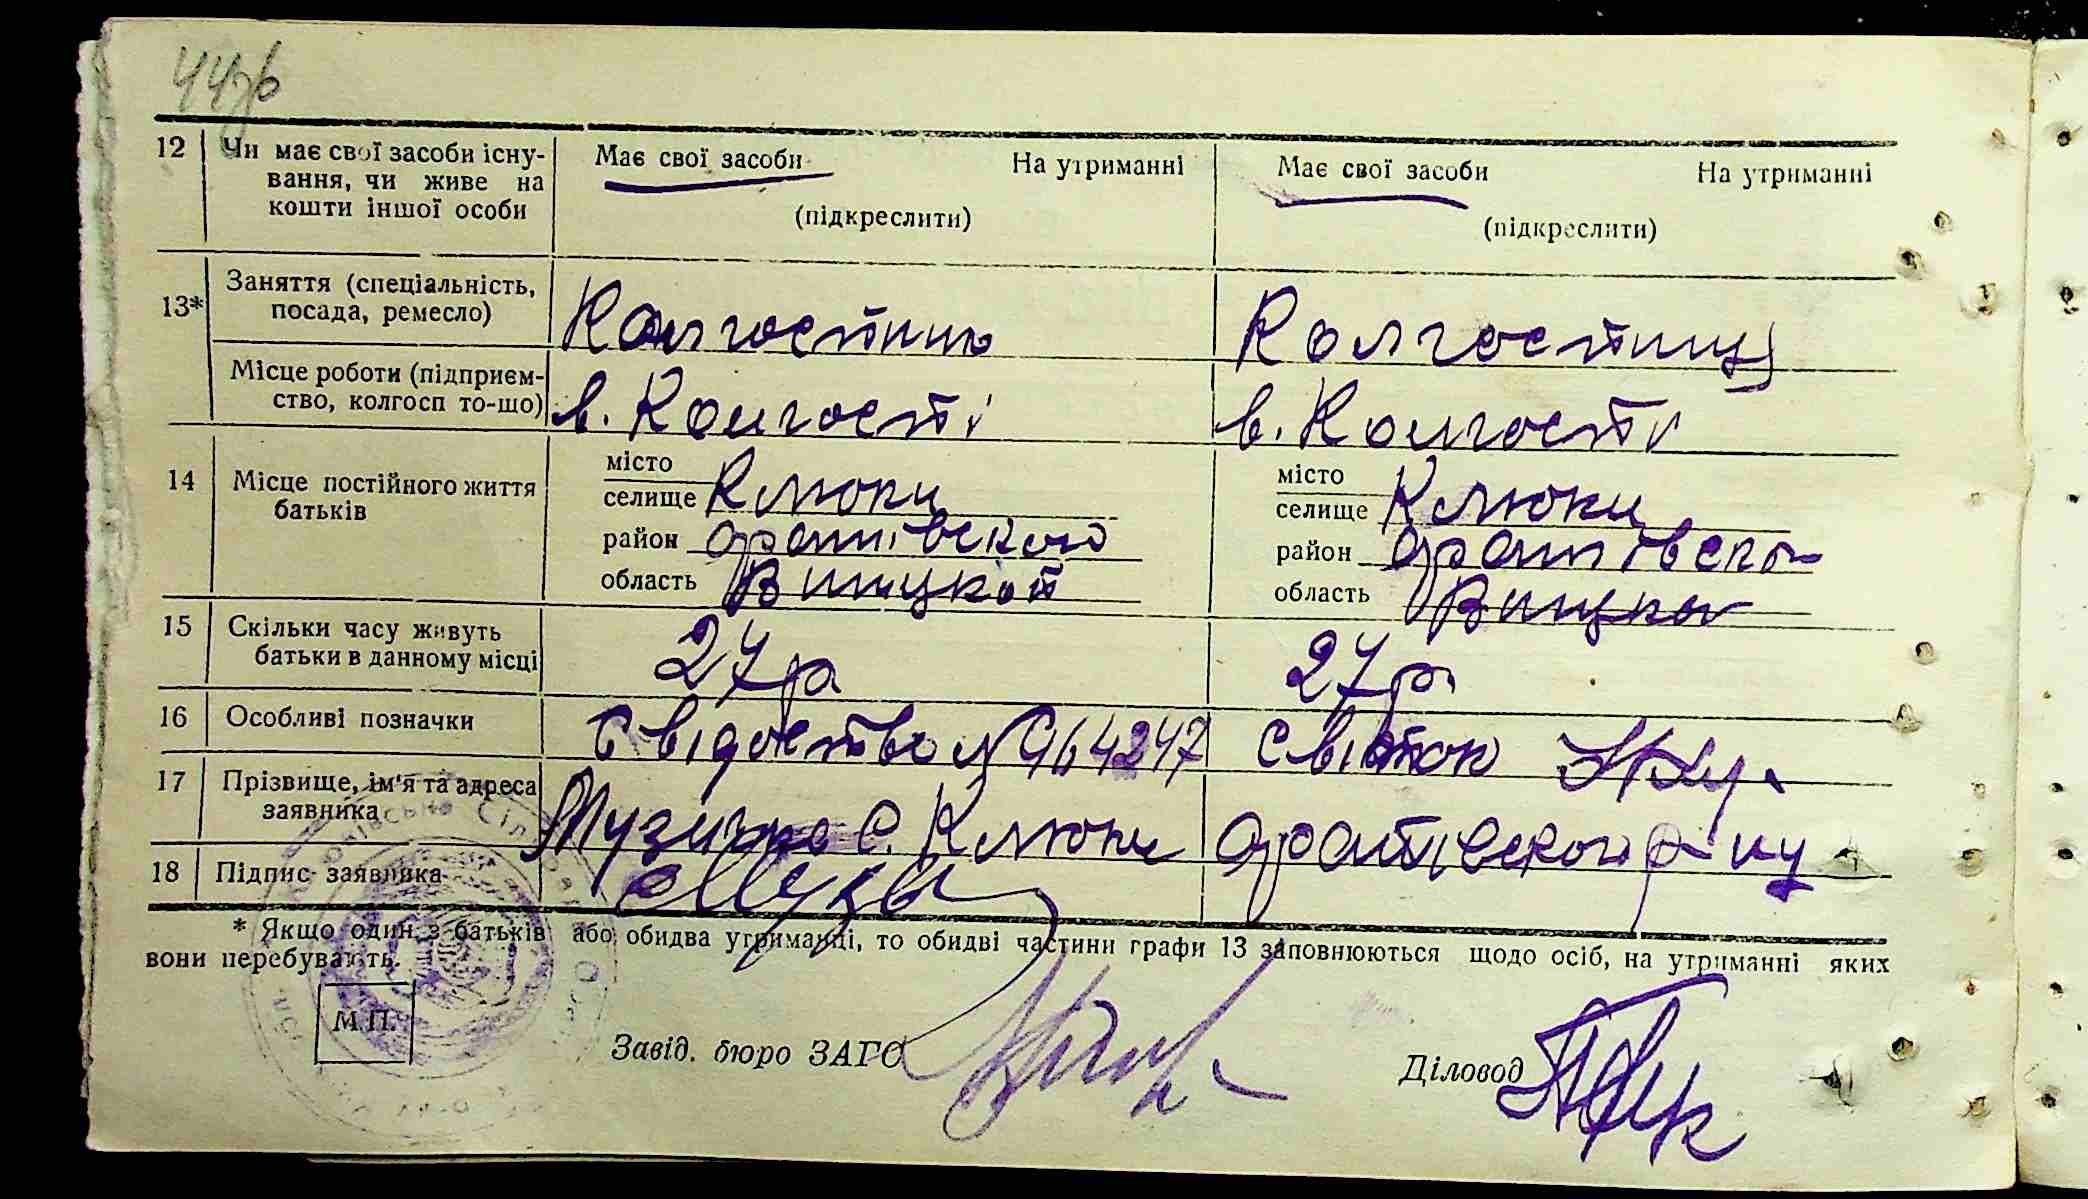 44зв
12 Чи має свої засоби існу- Має свої засоби На утриманні Має свої засоби На утриманні
вання, чи живе на
кошти іншої особи (підкреслити) (підкреслити)
13* Заняття (спеціальність,
посада, ремесло) Колгостник Колгостниця
Місце роботи (підприєм-
ство, колгосп то-що) в. Колгості в. Колгості
14 Місце постійного життя
батьків
місто місто
селище Клюки селище Клюки
район оратівского район оратівско
область Вницкой область Вницко
15 Скільки часу живуть
батьки в данному місці 27 р 27 р
16 Особливі позначки Свідоство № 964247
17 Прізвище, ім'я та адреса
заявника Музичко с. Клюки оратівского р-ну
18 Підпис заявника
* Якщо один з батьків або обидва утриманці, то обидві частини графи 13 заповнюються щодо осіб, на утриманні яких
вони перебувають.
М.П.
Завід. бюро ЗАГС Діловод